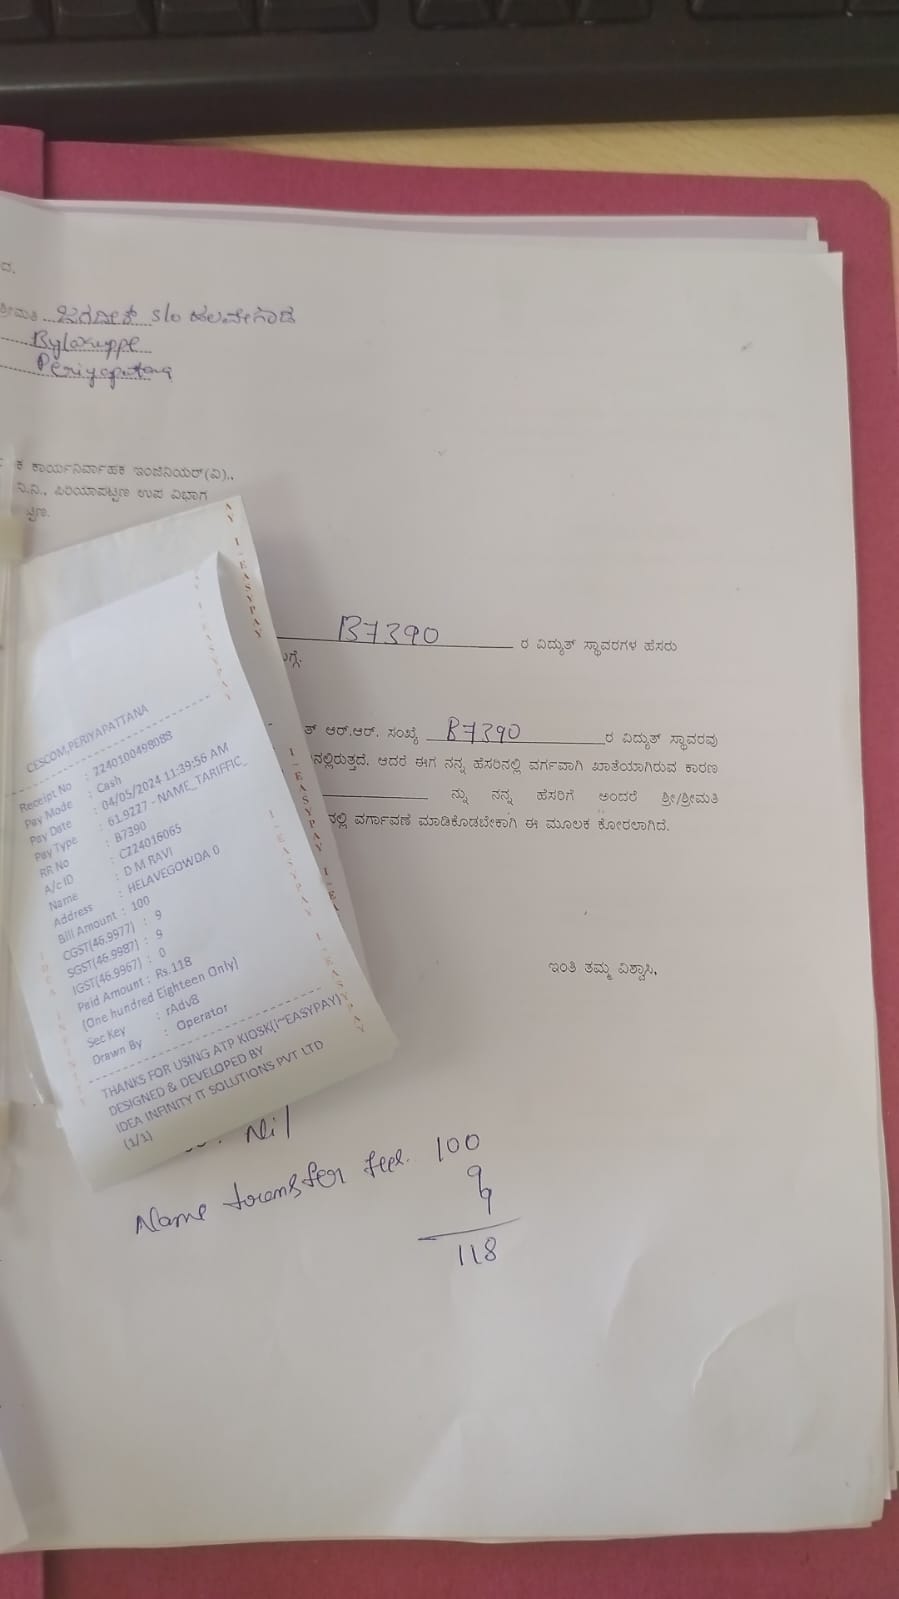 ದ.
ಶ್ರೀಮತಿ ಜಗದೀಶ್ S/o ಹಲವೇಗೌಡ
Bylakuppe
Periyapatana
ಕ ಕಾರ್ಯನಿರ್ವಾಹಕ ಇಂಜಿನಿಯರ್(ವಿ).,
ನಿ.ನಿ., ಪಿರಿಯಾಪಟ್ಟಣ ಉಪ ವಿಭಾಗ
ಟ್ಟಣ.
B7390 ರ ವಿದ್ಯುತ್ ಸ್ಥಾವರಗಳ ಹೆಸರು
ಗ್ಗೆ.
ತ್ ಆರ್.ಆರ್. ಸಂಖ್ಯೆ B7390 ರ ವಿದ್ಯುತ್ ಸ್ಥಾವರವು
ನಲ್ಲಿರುತ್ತದೆ. ಆದರೆ ಈಗ ನನ್ನ ಹೆಸರಿನಲ್ಲಿ ವರ್ಗವಾಗಿ ಖಾತೆಯಾಗಿರುವ ಕಾರಣ
ನ್ನು ನನ್ನ ಹೆಸರಿಗೆ ಅಂದರೆ ಶ್ರೀ/ಶ್ರೀಮತಿ
ನಲ್ಲಿ ವರ್ಗಾವಣೆ ಮಾಡಿಕೊಡಬೇಕಾಗಿ ಈ ಮೂಲಕ ಕೋರಲಾಗಿದೆ.
ಇಂತಿ ತಮ್ಮ ವಿಶ್ವಾಸಿ,
CESCOM,PERIYAPATTANA
Receipt No : 2240100498088
Pay Mode : Cash
Pay Date : 04/05/2024 11:39:56 AM
Pay Type : 61.9227 - NAME_TARIFFIC_
RR No : B7390
A/c ID : C224016065
Name : D M RAVI
Address : HELAVEGOWDA 0
Bill Amount : 100
CGST(46.9977) : 9
SGST(46.9987) : 9
IGST(46.9967) : 0
Paid Amount : Rs.118
(One hundred Eighteen Only)
Sec Key : rAdv8
Drawn By : Operator
THANKS FOR USING ATP KIOSK(I~EASYPAY)
DESIGNED & DEVELOPED BY
IDEA INFINITY IT SOLUTIONS PVT LTD
(1/1)
Nil
Name transfer fees. 100
9
9
118